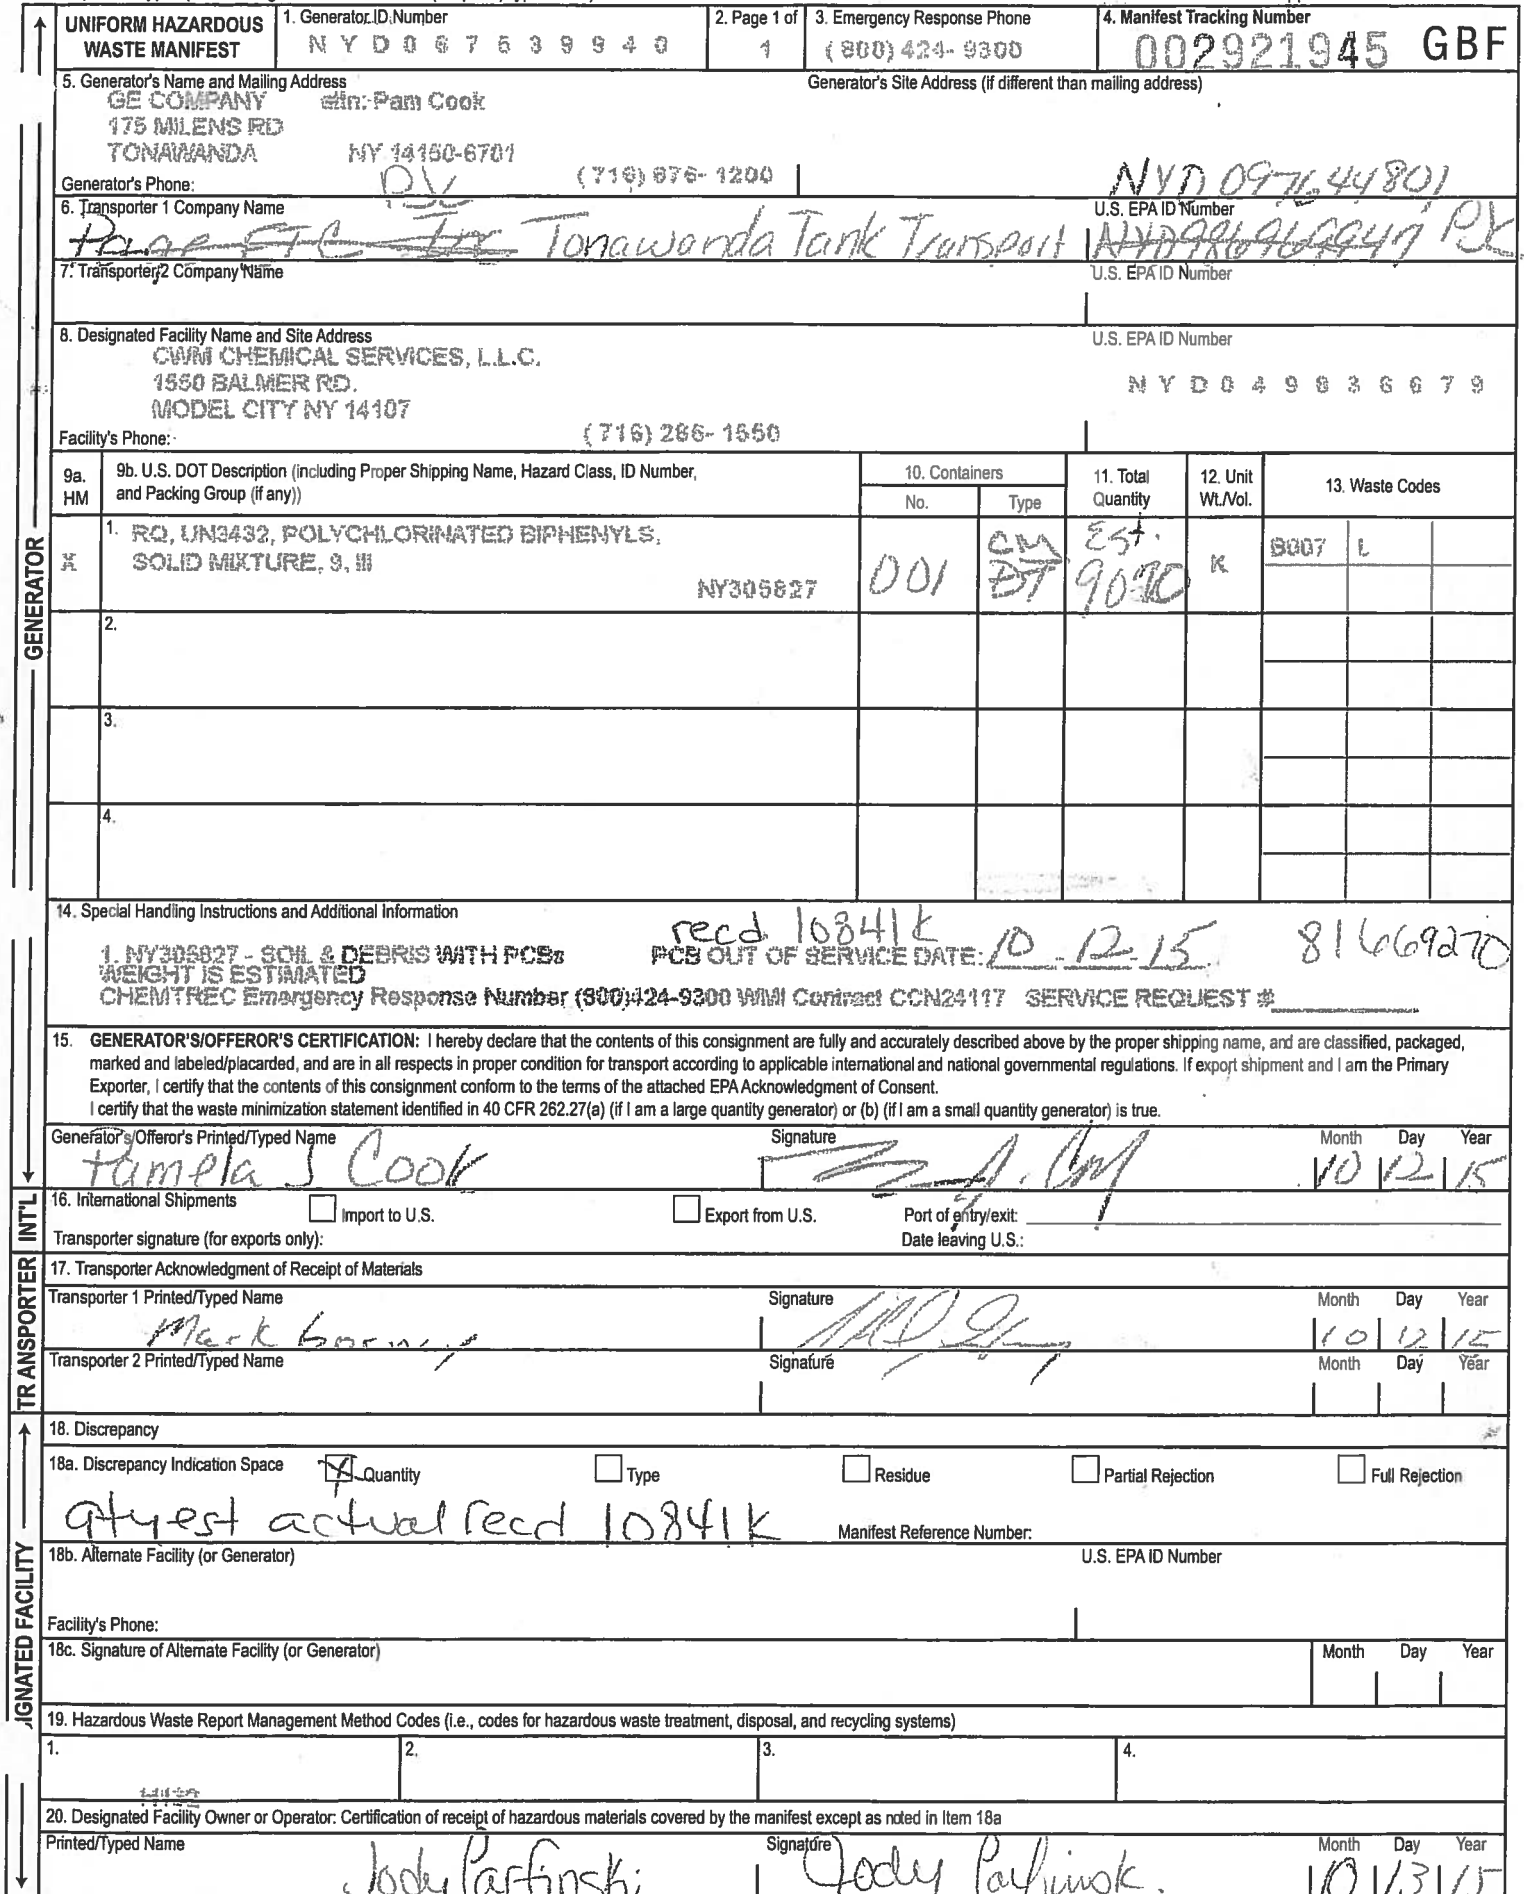 UNIFORM HAZARDOUS WASTE MANIFEST
1. Generator ID Number
N Y D 0 6 7 5 3 9 9 4 0
2. Page 1 of
1
3. Emergency Response Phone
(800) 424-9300
4. Manifest Tracking Number
002921945 GBF
5. Generator's Name and Mailing Address
Generator's Site Address (if different than mailing address)
GE COMPANY attn: Pam Cook
175 MILENS RD
TONAWANDA NY 14150-6701
Generator's Phone: (716) 876-1200
NYD 097644801
6. Transporter 1 Company Name
U.S. EPA ID Number
Tonawanda Tank Transport
PJC
7. Transporter 2 Company Name
U.S. EPA ID Number
8. Designated Facility Name and Site Address
U.S. EPA ID Number
CWM CHEMICAL SERVICES, L.L.C.
1550 BALMER RD.
N Y D 0 4 9 8 3 6 6 7 9
MODEL CITY NY 14107
Facility's Phone: (716) 286-1550
9a. HM
9b. U.S. DOT Description (including Proper Shipping Name, Hazard Class, ID Number, and Packing Group (if any))
10. Containers
No.
Type
11. Total Quantity
12. Unit Wt./Vol.
13. Waste Codes
X
1. RQ, UN3432, POLYCHLORINATED BIPHENYLS,
SOLID MIXTURE, 9, III
NY305827
001
CM
DT
Est.
9070
K
B007 L
2.
3.
4.
14. Special Handling Instructions and Additional Information
recd 10841k
1. NY305827 - SOIL & DEBRIS WITH PCBs PCB OUT OF SERVICE DATE: 10-12-15 81669270
WEIGHT IS ESTIMATED
CHEMTREC Emergency Response Number (800)424-9300 WMI Contract CCN24117 SERVICE REQUEST #
15. GENERATOR'S/OFFEROR'S CERTIFICATION: I hereby declare that the contents of this consignment are fully and accurately described above by the proper shipping name, and are classified, packaged,
marked and labeled/placarded, and are in all respects in proper condition for transport according to applicable international and national governmental regulations. If export shipment and I am the Primary
Exporter, I certify that the contents of this consignment conform to the terms of the attached EPA Acknowledgment of Consent.
I certify that the waste minimization statement identified in 40 CFR 262.27(a) (if I am a large quantity generator) or (b) (if I am a small quantity generator) is true.
Generator's/Offeror's Printed/Typed Name
Signature
Month Day Year
Pamela J Cook
10 12 15
16. International Shipments
Import to U.S.
Export from U.S.
Port of entry/exit:
Transporter signature (for exports only):
Date leaving U.S.:
17. Transporter Acknowledgment of Receipt of Materials
Transporter 1 Printed/Typed Name
Signature
Month Day Year
Mark
10 12 15
Transporter 2 Printed/Typed Name
Signature
Month Day Year
18. Discrepancy
18a. Discrepancy Indication Space
X Quantity
Type
Residue
Partial Rejection
Full Rejection
qty est actual recd 10841K
Manifest Reference Number:
18b. Alternate Facility (or Generator)
U.S. EPA ID Number
Facility's Phone:
18c. Signature of Alternate Facility (or Generator)
Month Day Year
19. Hazardous Waste Report Management Method Codes (i.e., codes for hazardous waste treatment, disposal, and recycling systems)
1.
2.
3.
4.
20. Designated Facility Owner or Operator: Certification of receipt of hazardous materials covered by the manifest except as noted in Item 18a
Printed/Typed Name
Signature
Month Day Year
Jody
Jody
10 13 15
GENERATOR
INT'L
TRANSPORTER
IGNATED FACILITY